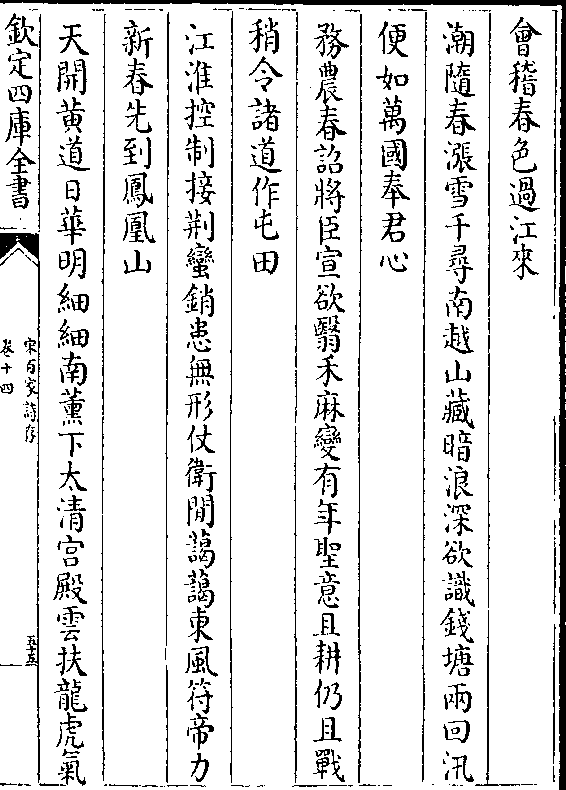 會稽春色過江來
潮隨春漲雪千尋南越山藏暗浪深欲識錢塘兩回汛
便如萬國奉君心
務農春詔將臣宣欲翳禾麻變有年聖意且耕仍且戰
稍令諸道作屯田
江淮控制接荆蠻銷患無形仗衛閒藹藹東風符帝力
新春先到鳳凰山
天開黄道日華明細細南薰下太清宫殿雲扶龍虎氣
欽定四庫全書
宋百家詩存
卷十四
五十五